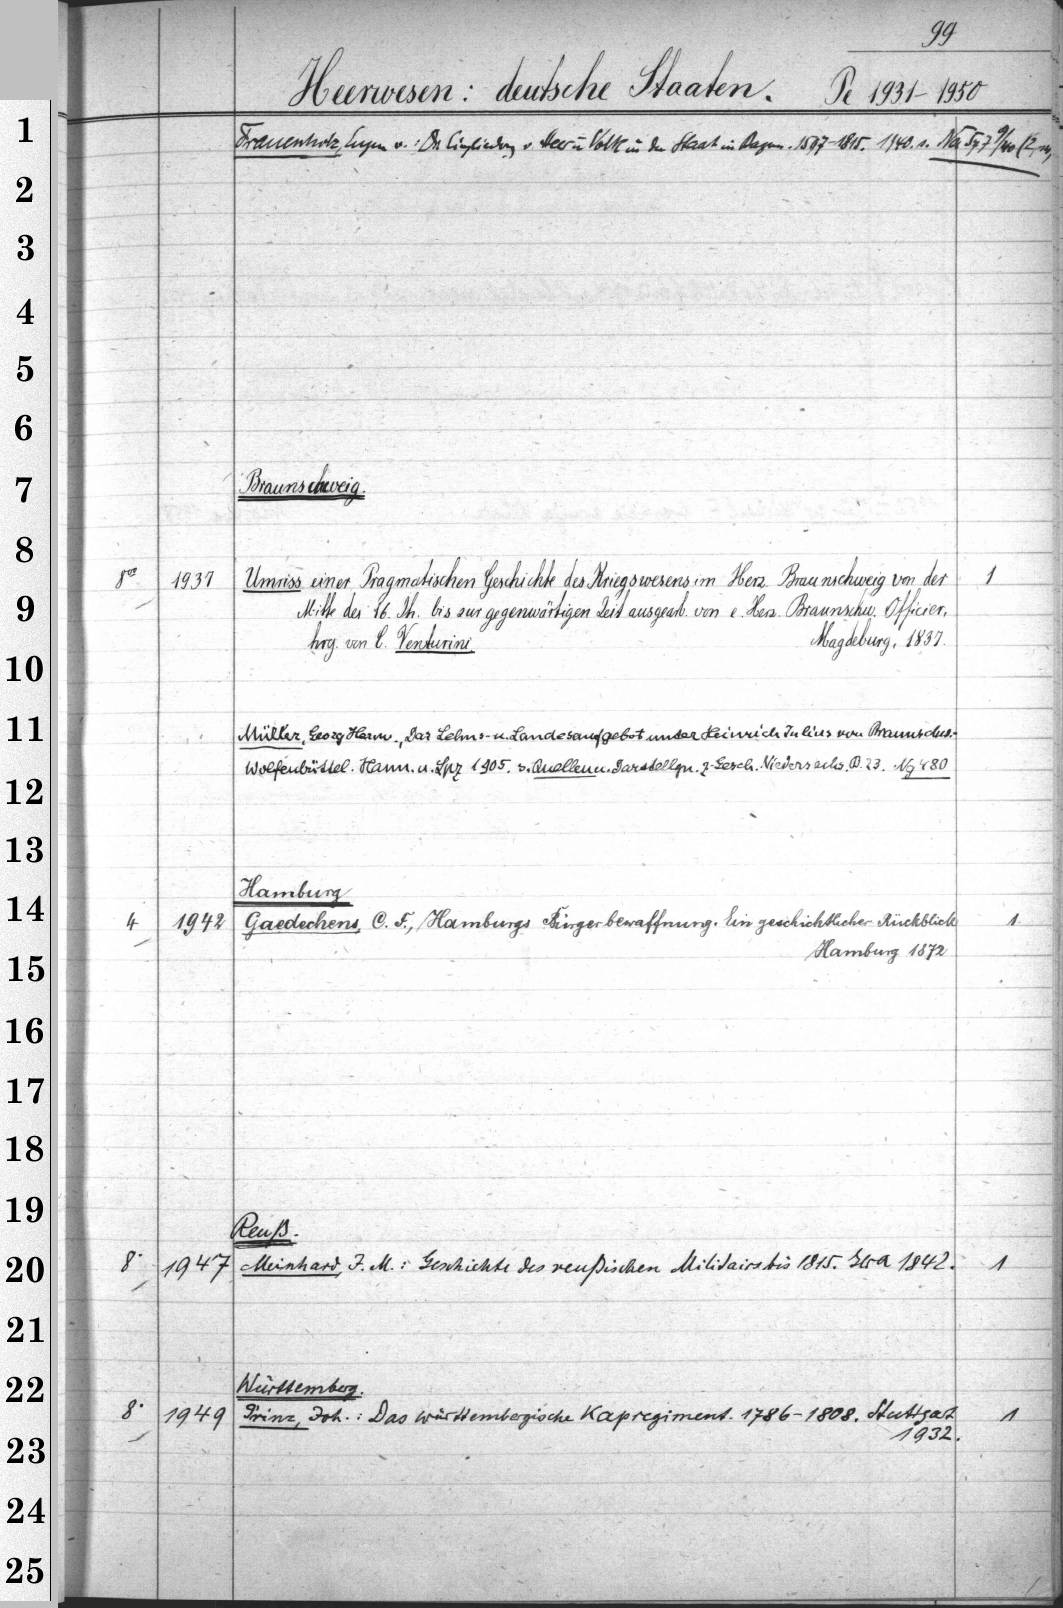 99
Heerwesen: deutsche Staaten. Pe 1931-1950
1
Frauenholz, Eugen v.: Die Eingliederg v. Heer u Volk in den Staat in Bayern. 1597-1815. 1940. s. Na 547 9/40
2
3
4
5
6
7
Braunschweig.
8
8° 1937 Umriss einer Pragmatischen Geschichte des Kriegswesens im Herz. Braunschweig von der 1
9
Mitte des 16. Jh. bis zur gegenwärtigen Zeit ausgearb. von e. Herz. Braunschw. Officier,
hrg. von C. Venturini Magdeburg, 1837.
10
11
Müller, Georg Herm., Das Lehns- u. Landesaufgebot unter Heinrich Julius von Braunschw.-
Wolfenbüttel. Hann. u. Lpz 1905. s. Quellen u. Darstellgn. z. Gesch. Niedersachs. B. 23. Ng 480
12
13
Hamburg
14
4 1942 Gaedechens, C. F., Hamburgs Bürgerbewaffnung. Ein geschichtlicher Rückblick 1
Hamburg 1872
15
16
17
18
19
Reuß.
20
8° 1947 Meinhard, F. M.: Geschichte des reußischen Militairs bis 1815. Gera 1842. 1
21
22
Württemberg.
8° 1949 Prinz, Joh.: Das württembergische Kapregiment. 1786-1808. Stuttgart 1
1932.
23
24
25